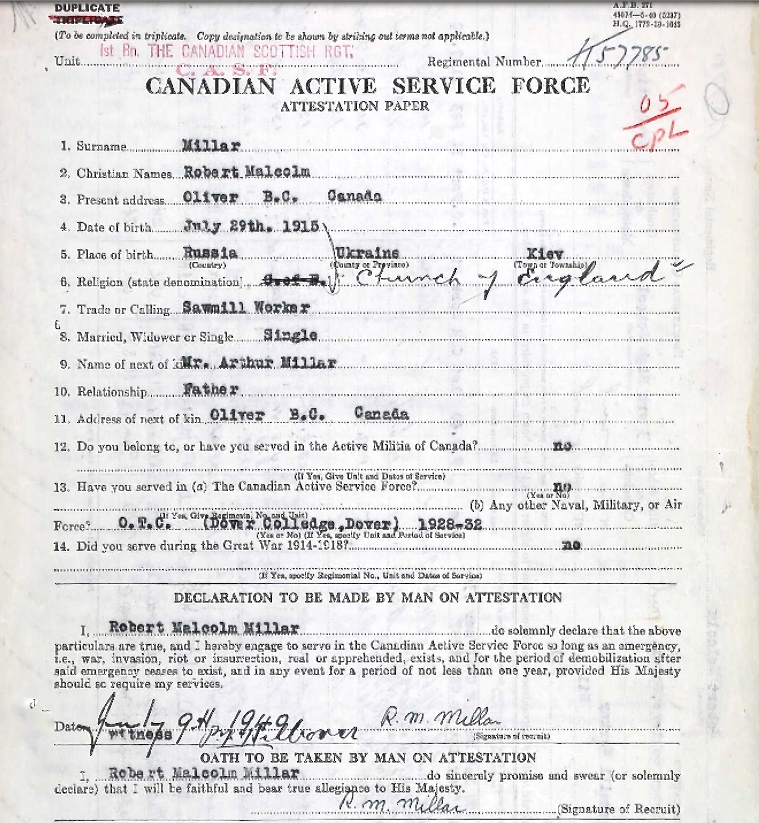 DUPLICATE
TRIPLICATE
A.F.B. 271
H.Q. 1772-39-1043
(To be completed in triplicate. Copy designation to be shown by striking out terms not applicable.)
1st Bn. THE CANADIAN SCOTTISH RGT,
Unit Regimental Number K57785
C. A. S. F.
CANADIAN ACTIVE SERVICE FORCE
ATTESTATION PAPER
05
CPL
1. Surname Millar
2. Christian Names Robert Malcolm
3. Present address Oliver B.C. Canada
4. Date of birth July 29th. 1915
5. Place of birth Russia Ukraine Kiev
(Country) (County or Province) (Town or Township)
6. Religion (state denomination) C.of E. Church of England
7. Trade or Calling Sawmill Worker
8. Married, Widower or Single Single
9. Name of next of kin Mr. Arthur Millar
10. Relationship Father
11. Address of next of kin Oliver B.C. Canada
12. Do you belong to, or have you served in the Active Militia of Canada? no
(If Yes, Give Unit and Dates of Service)
13. Have you served in (a) The Canadian Active Service Force? no
(Yes or No)
(b) Any other Naval, Military, or Air
(If Yes, Give Regimental No. and Unit)
Force? O.T.C. (Dover Colledge,Dover) 1928-32
(Yes or No) (If Yes, specify Unit and Period of Service)
14. Did you serve during the Great War 1914-1918? no
(If Yes, specify Regimental No., Unit and Dates of Service)
DECLARATION TO BE MADE BY MAN ON ATTESTATION
I, Robert Malcolm Millar do solemnly declare that the above
particulars are true, and I hereby engage to serve in the Canadian Active Service Force so long as an emergency,
i.e., war, invasion, riot or insurrection, real or apprehended, exists, and for the period of demobilization after
said emergency ceases to exist, and in any event for a period of not less than one year, provided His Majesty
should so require my services.
Date July 9th 1940 R. M. Millar
witness (Signature of recruit)
OATH TO BE TAKEN BY MAN ON ATTESTATION
I, Robert Malcolm Millar do sincerely promise and swear (or solemnly
declare) that I will be faithful and bear true allegiance to His Majesty.
R. M. Millar (Signature of Recruit)